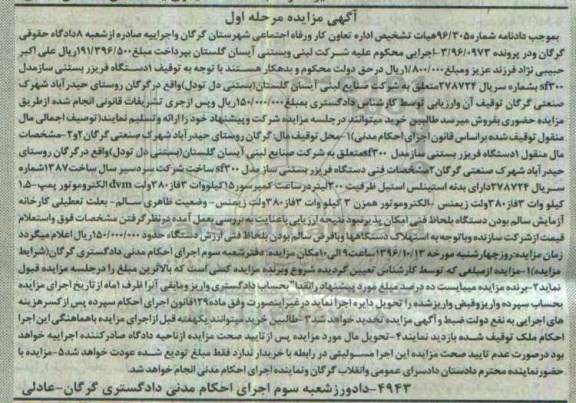 آگهی مزایده مرحله اول
بموجب دادنامه شماره ۹۶/۳۰۵هیات تشخیص اداره تعاون کار ورفاه اجتماعی شهرستان گرگان واجراییه صادره ازشعبه ۸دادگاه حقوقی
گرگان ودر پرونده ۳/۹۶/۰۹۷۳-اجرایی محکوم علیه شرکت لبنی وبستنی آیسان گلستان بپرداخت مبلغ ۱۹۱/۳۹۶/۵۰۰ریال علی اکبر
حبیبی نژاد فرزند عزیز ومبلغ ۱/۸۰۰/۰۰۰ریال در حق دولت محکوم و بدهکار هستند با توجه به توقیف ۱دستگاه فریزر بستنی سازمدل
sf۳۰۰ بشماره سریال ۲۷۸۷۲۴متعلق به شرکت صنایع لبنی آیسان گلستان(بستنی دل تودل)واقع درگرگان روستای حیدر آباد شهرک
صنعتی گرگان توقیف آن وارزیابی توسط کارشناس دادگستری بمبلغ ۱۵۰/۰۰۰/۰۰۰ریال وپس ازجری تشریفات قانونی انجام شده ازطریق
مزایده حضوری بفروش میرسد طالبین خرید میتوانند درجلسه مزایده شرکت وپیشنهاد خود را ارائه وتسلیم نمایند(توصیف اجمالی مال
منقول توقیف شده براساس قانون اجرای احکام مدنی)۱-محل توقیف مال:گرگان روستای حیدر آباد شهرک صنعتی گرگان ۲و۲-مشخصات
مال منقول ۱دستگاه فریزر بستنی سازمدل sf۳۰۰متعلق به شرکت صنایع لبنی آیسان گلستان(بستنی دل تودل)واقع در گرگان روستای
حیدرآباد شهرک صنعتی گرگان ۲مشخصات فنی دستگاه فریزر بستنی ساز مدل sf۳۰۰ساخت شرکت سردسیر سال ساخت ۱۳۸۷شماره
سریال ۲۷۸۷۲۴دارای بدنه استینلس استیل ظرفیت ۲۰۰لیتردرساعت کمپرسور ۱۵کیلووات ۳فاز ۳۸۰ولت dvm الکتروموتور پمپ-۱.۵
کیلو وات ۳فاز ۳۸۰ولت زیمنس-الکتروموتور همزن ۳ کیلو وات ۳فاز ۳۸۰ولت زیمنس- وضعیت ظاهری سالم- بعلت تعطیلی کارخانه
آزمایش سالم بودن دستگاه بلحاظ فنی امکان پذیرنبود نتیجه ارزیابی باعنایت به بررسی بعمل آمده درنظرگرفتن مشخصات فوق واستعلام
قیمت ازشرکت سازنده وباتوجه به مستهلک دستگاهها وبافرض سالم بودن بلحاظ فنی ارزش دستگاه حدود ۱۵۰/۰۰۰/۰۰۰ریال اعلام میگردد
زمان مزایده:روزچهارشنبه مورخه ۱۳۹۶/۱۰/۱۳ساعت ۹الی ۱۰مکان مزایده:دفترشعبه سوم اجرای احکام مدنی دادگستری گرگان(شرایط
مزایده)۱-مزایده ازمبلغی که توسط کارشناس تعیین گردیده شروع وبرنده مزایده کسی است که بالاترین مبلغ را درجلسه مزایده قبول
نماید۲-برنده مزایده میبایست ده درصد مبلغ مورد پیشنهاد رانقدا"بحساب دادگستری واریز ومابقی آنرا ظرف ۱ماه از تاریخ اجرای مزایده
بحساب سپرده واریزوفیش واریزشده را تحویل دایره اجرا نماید درغیراینصورت وفق ماده ۱۲۹قانون اجرای احکام سپرده پس از کسر هزینه
های اجرایی به نفع دولت ضبط و آگهی مزایده تجدید خواهد شد۳-طالبین خرید میتوانند یکهفته قبل ازاجرای مزایده باهماهنگی این اجرا
احکام ملک توقیف شده بازدید نمایند۴-تحویل مال مورد مزایده پس از تایید صحت مزایده ازناحیه دادگاه صادرکننده اجراییه خواهد
بود درصورت عدم تایید صحت مزایده این اجرا مسولیتی در رابطه با خریدار ندارد فقط مبلغ تودیع شده عودت خواهد شد۵-مزایده با
حضورنماینده محترم دادستان دادسرای عمومی وانقلاب گرگان ونماینده اجرای احکام مدنی انجام خواهد شد.
۴۹۴۳-دادورزشعبه سوم اجرای احکام مدنی دادگستری گرگان-عادلی